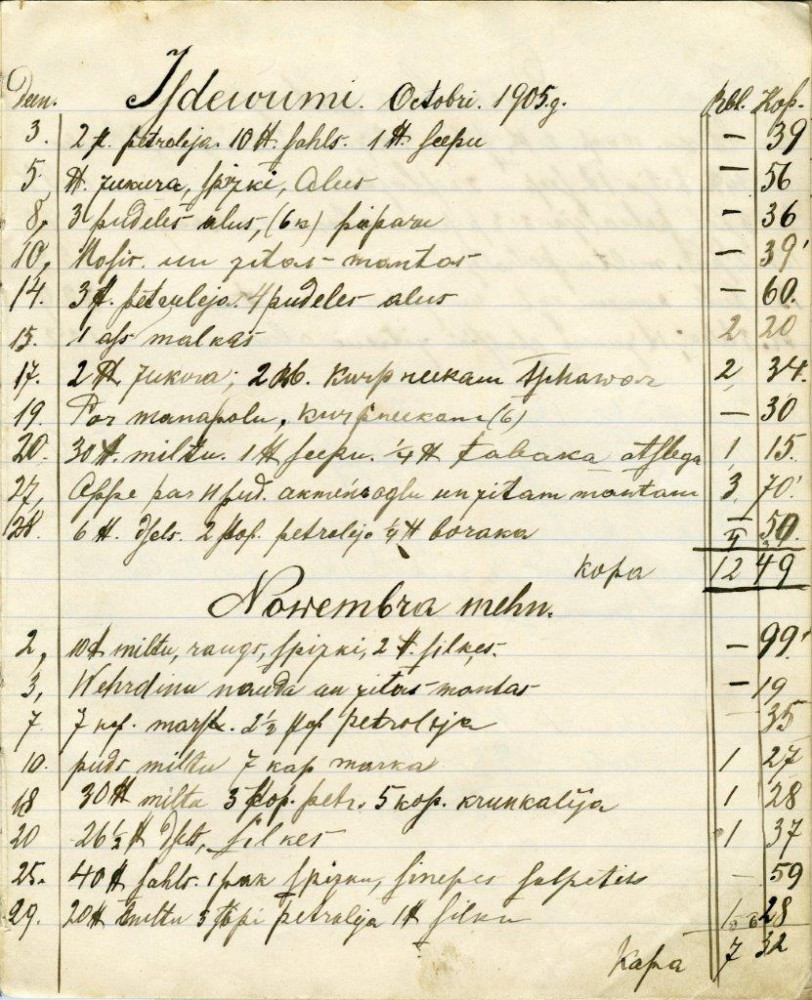 Deen. Isdewumi. Octobri. 1905.g. Rbl. Kop.
3. 2 st. petroleja. 10 ℔. sahls. 1 ℔. seepu — 39
5. ℔. zukura, spizki, Alus — 56
8, 3 pudeles alus, (6 k) papira — 36
10, un zitas mantas — 39
14. 3 st. petroleja. 4 pudeles alus — 60.
15. 1 ass malkas 2 20
17. 2 ℔ zukura; 2 Rb. Kurpneekam 2 34.
19. Par manapolu, kurpneekam (6) — 30
20. 30 ℔. miltu. 1 ℔ seepu. ¼ ℔ tabaka atslega 1 15.
27, Appe par 4 pud. akmeņoglu un zitam mantam 3 70
28. 6 ℔. dsels. 2 stop. petroleja ¼ ℔ boraka — 50.
kopa 12 49
Nowembra mehn.
2, 10 ℔ miltu, raugs, spizki, 2 ℔. silķes. — 99
3, Wehrdiņu nauda un zitas mantas — 19
7 7 kop. mark. 2½ stop petroleja — 35
10. puds miltu 7 kap marka 1 27
18 30 ℔ miltu 3 stop. petr. 5 kop. krunkalija 1 28
20 26½ ℔ silkes 1 37
25. 40 ℔ sahls. 1 pak spizku, sinepes salpeteris — 59
29. 20 ℔ miltu 3 stopi petroleja 1 ℔ silku 1 28
Kapa 7 32